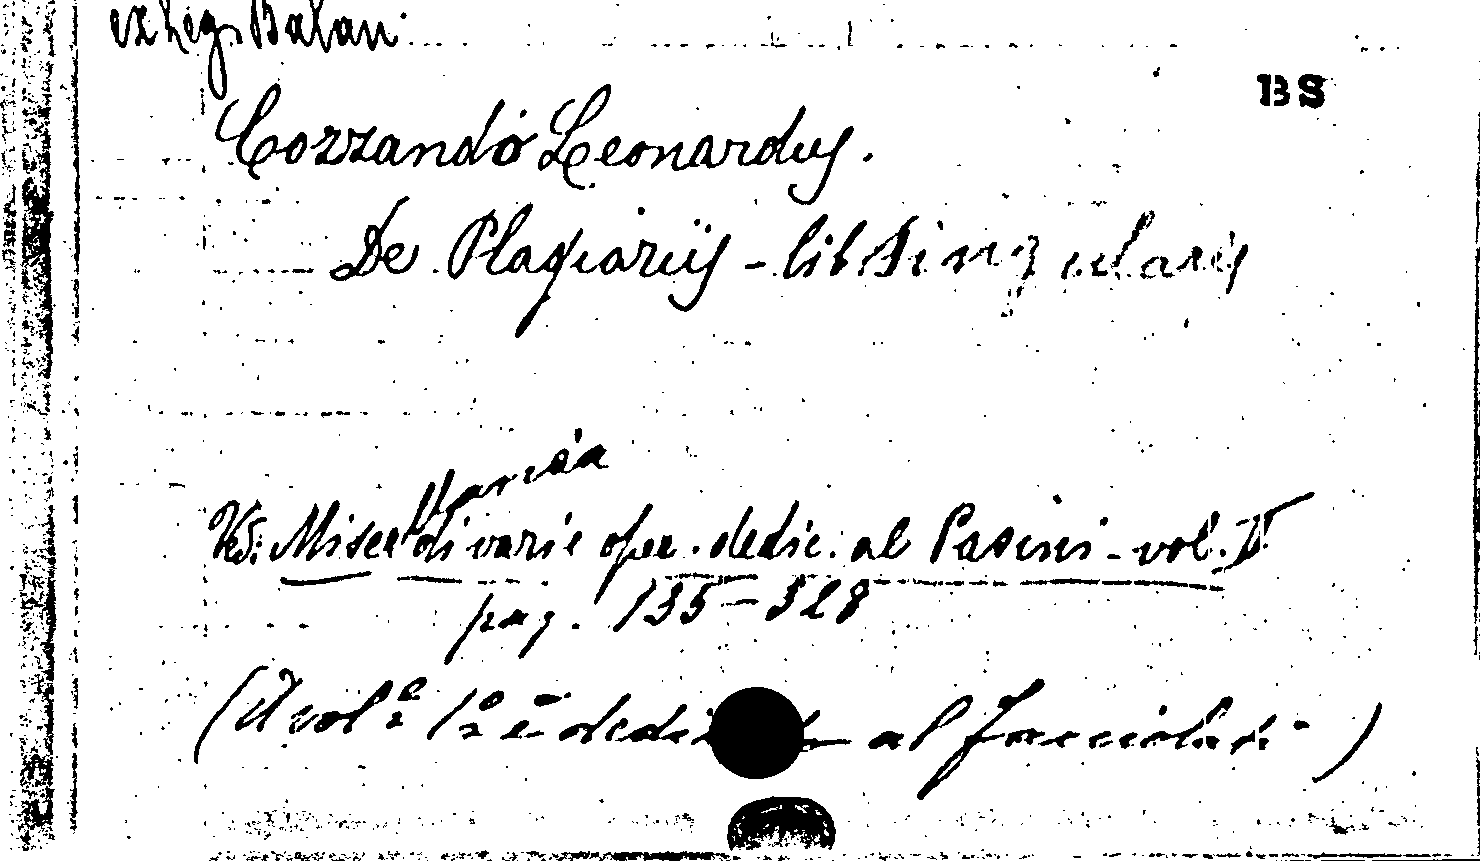 ex leg. Balan.
BS
Cozzando Leonardus.
De Plagiariis - lib singularis
Ved: Miscellanea di varie oper. dedic. al Pasini - vol. V
pag. 135-328
(Il vol.e 1º è al Facciolati)